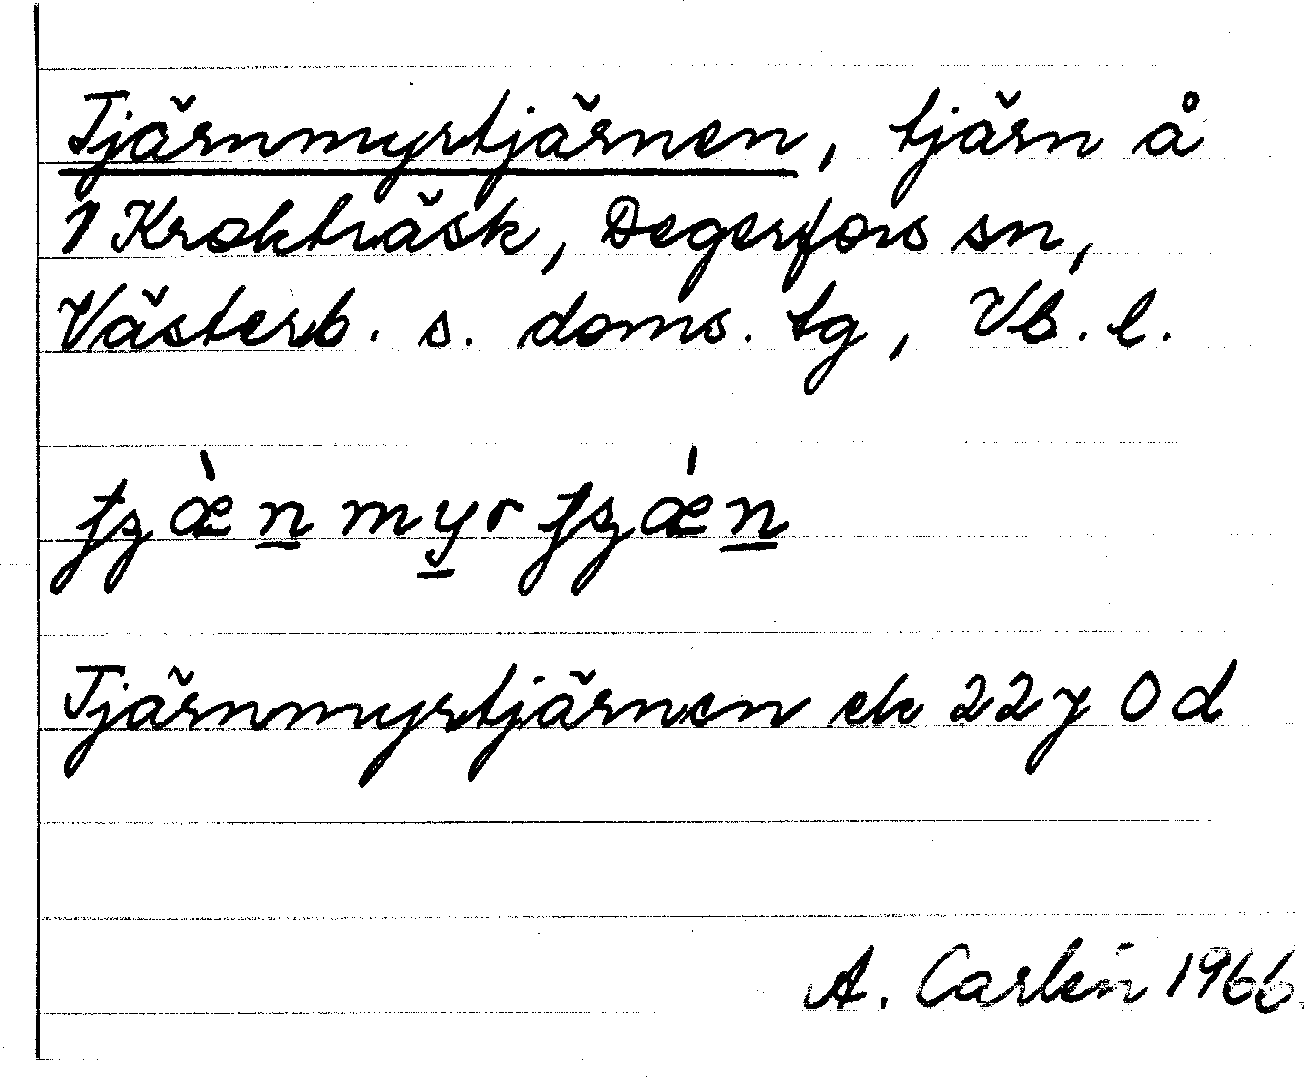 Tjärnmyrtjärnen, tjärn å
1 Krokträsk, Degerfors sn,
Västerb. s. doms. tg, Vb. l.
Tjärnmyrtjärnen ek 22 7 0 d
A. Carlén 1966.